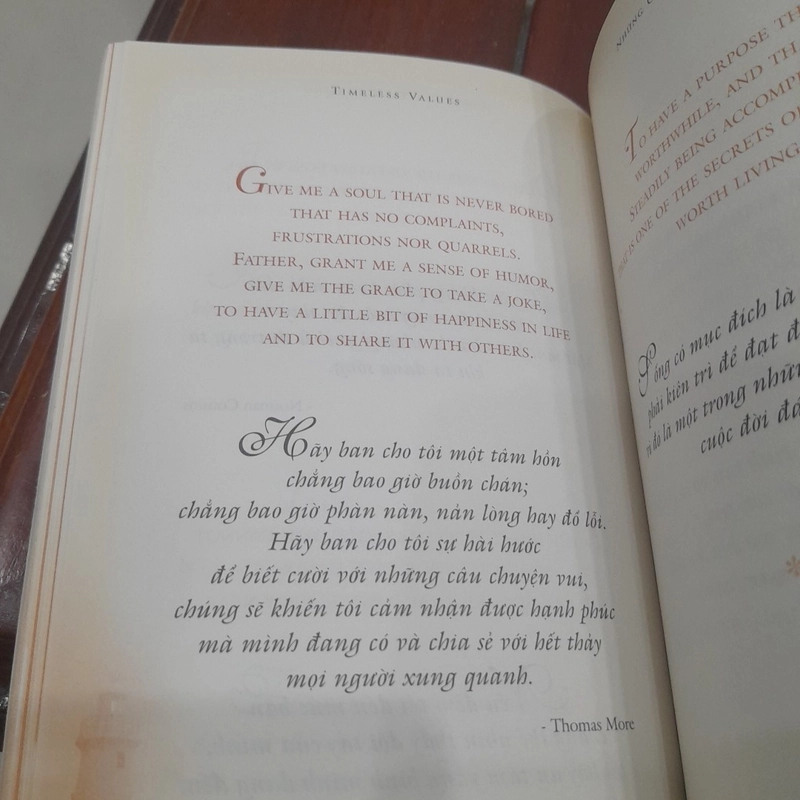 TIMELESS VALUES
GIVE ME A SOUL THAT IS NEVER BORED
THAT HAS NO COMPLAINTS,
FRUSTRATIONS NOR QUARRELS.
FATHER, GRANT ME A SENSE OF HUMOR,
GIVE ME THE GRACE TO TAKE A JOKE,
TO HAVE A LITTLE BIT OF HAPPINESS IN LIFE
AND TO SHARE IT WITH OTHERS.
Hãy ban cho tôi một tâm hồn
chẳng bao giờ buồn chán;
chẳng bao giờ phàn nàn, nản lòng hay đổ lỗi.
Hãy ban cho tôi sự hài hước
để biết cười với những câu chuyện vui,
chúng sẽ khiến tôi cảm nhận được hạnh phúc
mà mình đang có và chia sẻ với hết thảy
mọi người xung quanh.
- Thomas More
NHỮNG
TO HAVE A PURPOSE
WORTHWHILE, AND
STEADILY BEING
IS ONE OF THE SECRETS
WORTH LIVING
Sống có mục đích là
phải kiên trì để đạt
vì đó là một trong
cuộc đời